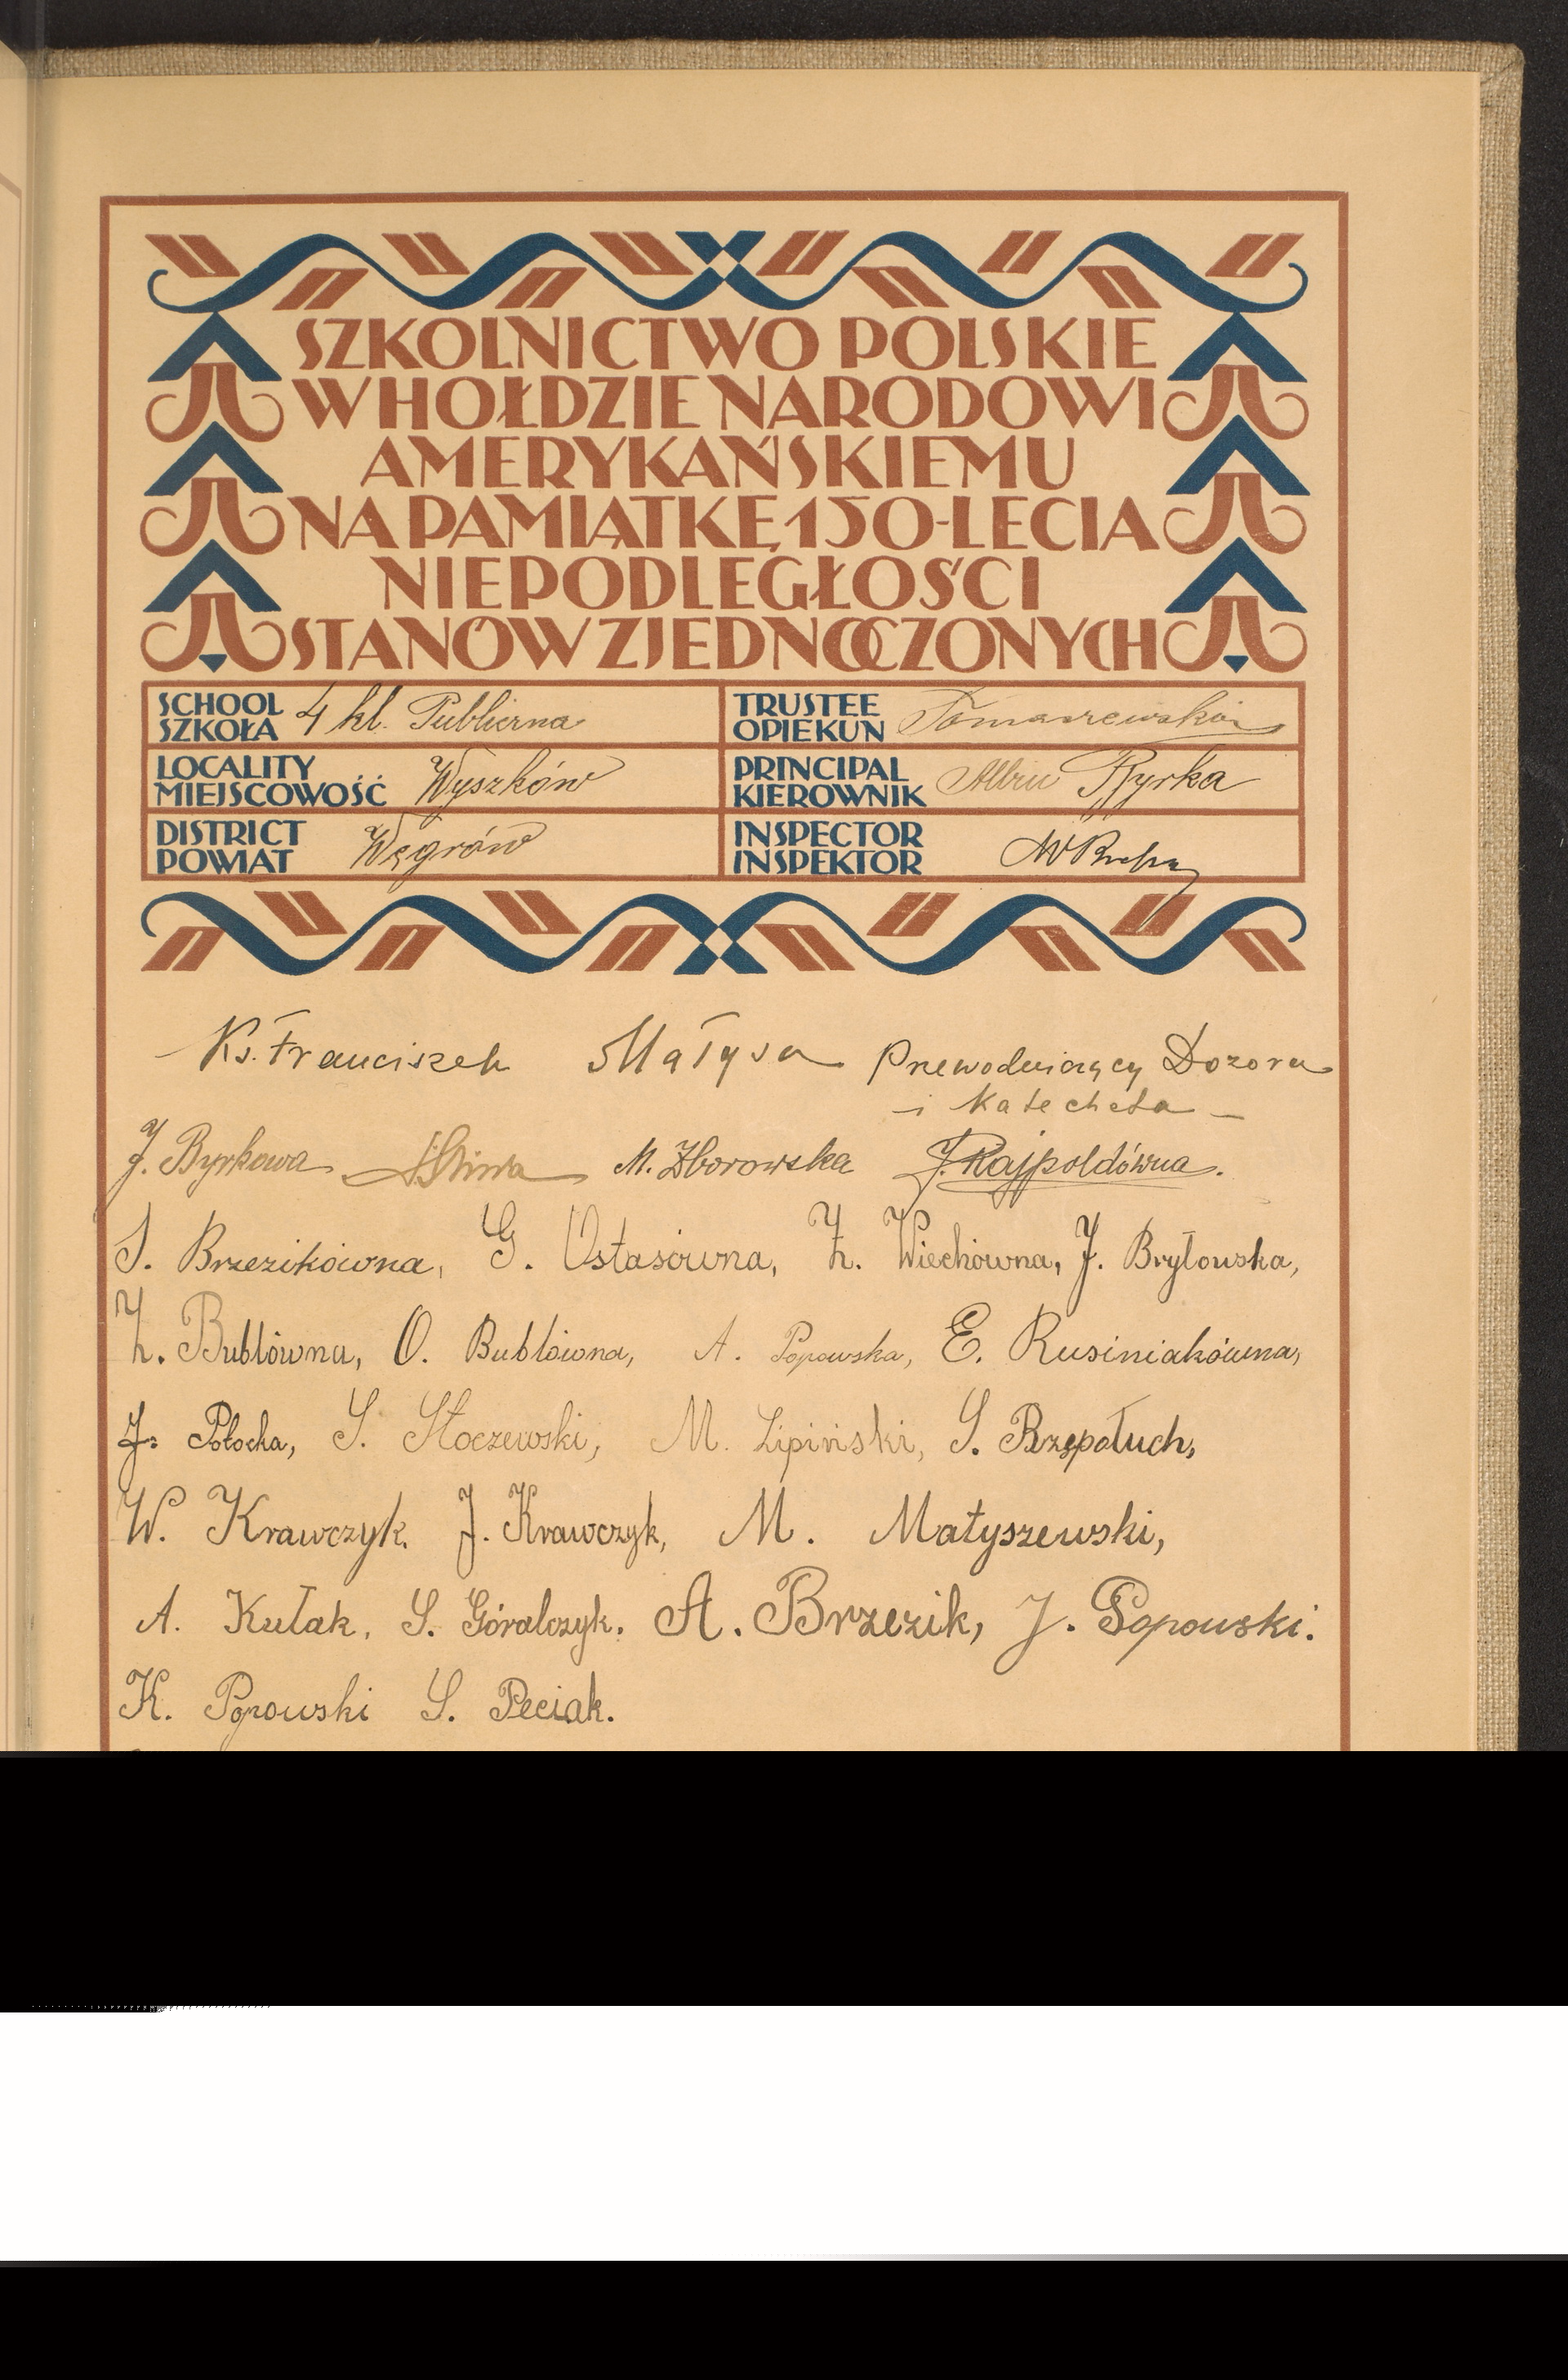 SZKOLNICTWO POLSKIE
W HOŁDZIE NARODOWI
AMERYKAŃSKIEMU
NA PAMIĄTKĘ 150-LECIA
NIEPODLEGŁOŚCI
STANÓW ZJEDNOCZONYCH
SCHOOL SZKOŁA 4 kl. Publiczna
TRUSTEE OPIEKUN
LOCALITY MIEJSCOWOŚĆ Wyszków
PRINCIPAL KIEROWNIK Albin Byrka
DISTRICT POWIAT Węgrów
INSPECTOR INSPEKTOR
Ks. Franciszek Małysa Przewodniczący Dozoru
i Katecheta
J. Byrkowa M. Zborowska J. Rajpoldówna.
S. Brzezikówna, G. Ostasówna, Z. Wiechówna, J. Bryłowska,
Z. Bublówna, O. Bublówna, A. Popowska, E. Rusiniakówna,
J. Połocka, S. Stoczewski, M. Lipiński, S. Rzępołuch,
W. Krawczyk. J. Krawczyk, M. Matyszewski,
A. Kułak, S. Góralczyk. A. Brzezik, J. Popowski.
K. Popowski S. Peciak.